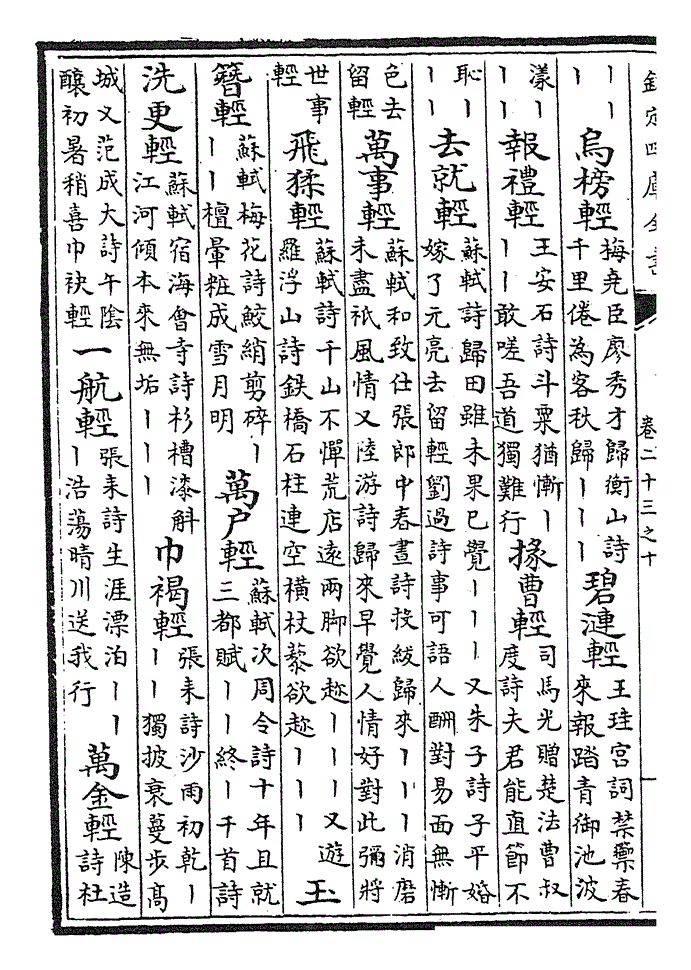 欽定四庫全書
卷二十三之十
丨丨
丨
烏榜輕
梅堯臣廖秀才歸衡山詩
千里倦為客秋歸丨丨丨
碧漣輕
王珪宮詞禁籞春
來報踏青御池波
漾丨
丨丨
報禮輕
王安石詩斗粟猶慚丨
丨丨敢嗟吾道獨難行
掾曹輕
司馬光贈楚法曹叔
度詩夫君能直節不
恥丨
丨丨
去就輕
蘇軾詩歸田雖未果已覺丨丨丨又朱子詩子平婚
嫁了元亮去留輕劉過詩事可語人酬對易面無慚
色去
留輕
萬事輕
蘇軾和致仕張郎中春晝詩投紱歸來丨丨丨消磨
未盡祇風情又陸游詩歸來早覺人情好對此彌將
世事
輕
飛猱輕
蘇軾詩千山不憚荒店遠兩脚欲趂丨丨丨又遊
羅浮山詩鉄橋石柱連空橫杖藜欲趂丨丨丨
玉
簪輕
蘇軾梅花詩鮫綃剪碎丨
丨丨檀暈粧成雪月明
萬户輕
蘇軾次周令詩十年且就
三都賦丨丨終丨千首詩
洗更輕
蘇軾宿海會寺詩杉槽漆斛
江河傾本來無垢丨丨丨
巾褐輕
張耒詩沙雨初乾丨
丨丨獨披衰蔓步高
城又范成大詩午陰
釀初暑稍喜巾袂輕
一航輕
張耒詩生涯漂泊丨丨
丨浩蕩晴川送我行
萬金輕
陳造
詩杜